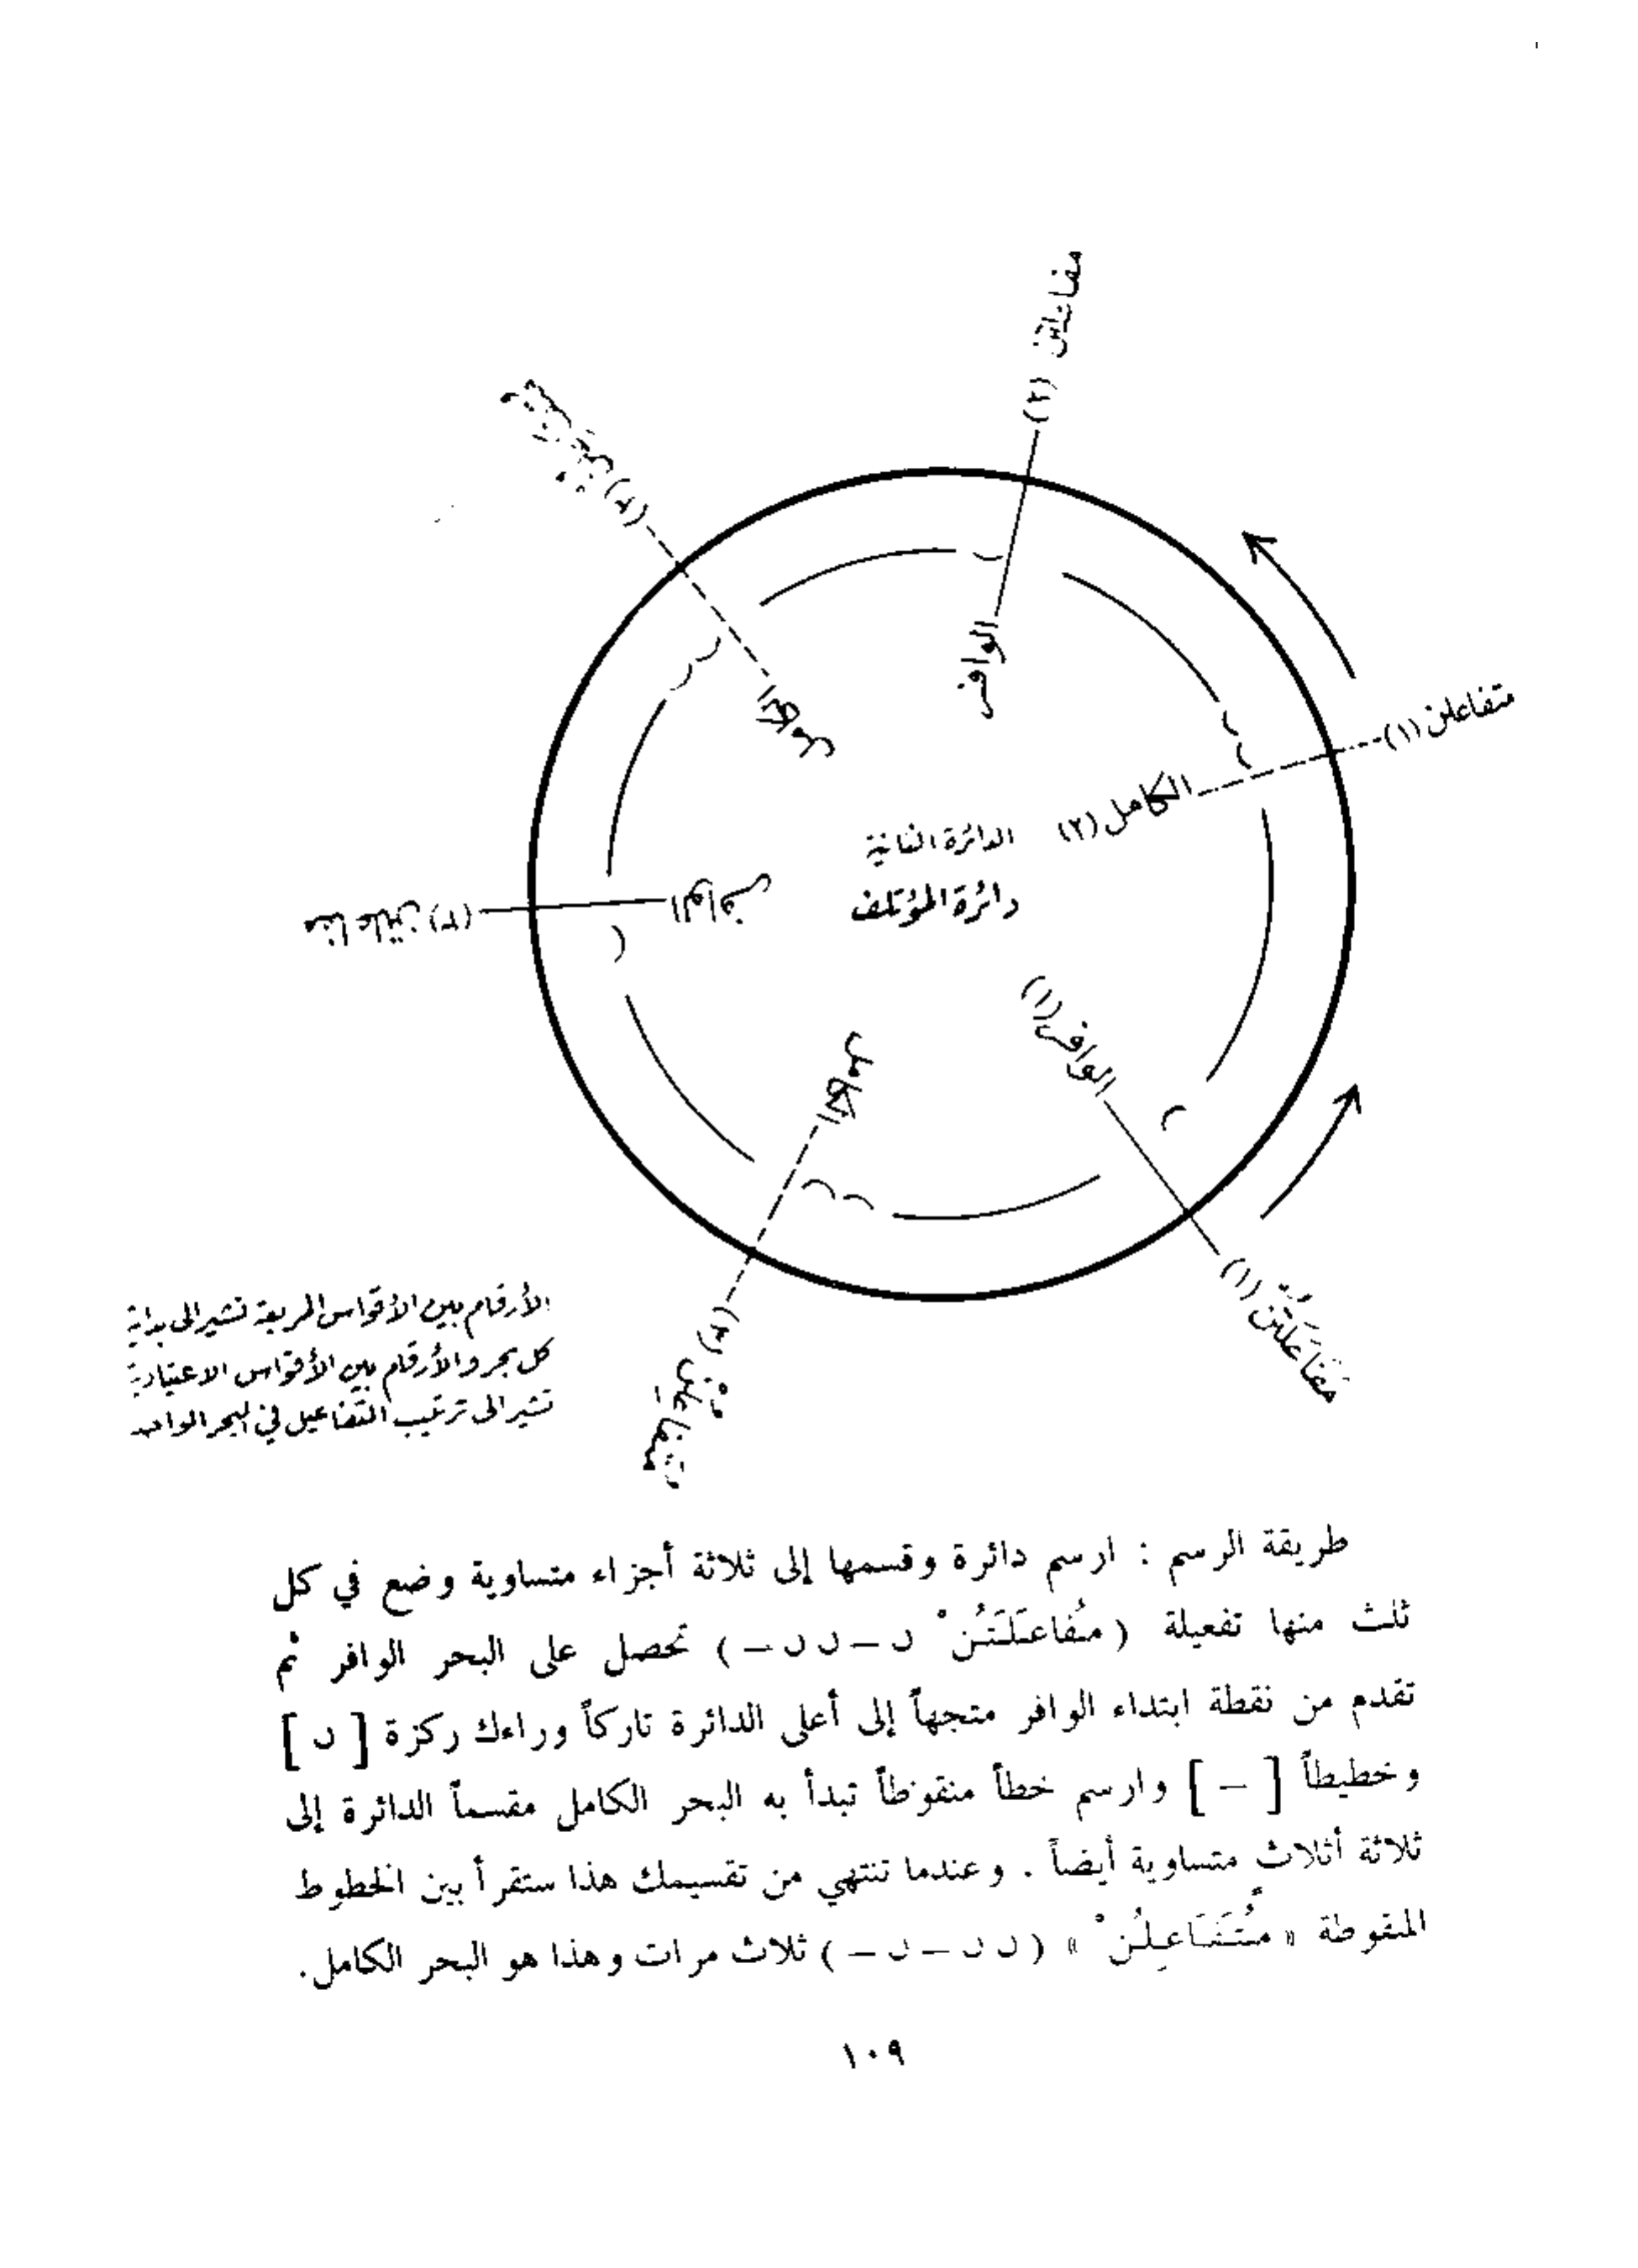 مفاعلتن (٢)
(٢)
متفاعلن (١)
الوافر
الكامل
الكامل (٢)
الدائرة الثانية
دائرة المؤتلف
الوافر
مفاعلتن (٣)
الوافر (١)
الكامل
مُفَاعَلَتُنْ (١)
(٣)
متفاعلن
الأرقام بين الأقواس المربعة تشير الى بداية
كل بحر والأرقام بين الأقواس الاعتيادية
تشير الى ترتيب التفاعيل في البحر الواحد
طريقة الرسم : ارسم دائرة وقسمها إلى ثلاثة أجزاء متساوية وضع في كل
ثلث منها تفعيلة ( مُفاعَلَتُنْ ں – ں ں – ) تحصل على البحر الوافر ثم
تقدم من نقطة ابتداء الوافر متجهاً إلى أعلى الدائرة تاركاً وراءك ركزة [ ں ]
وخطيطاً [ – ] وارسم خطاً منقوطاً تبدأ به البحر الكامل مقسماً الدائرة إلى
ثلاثة أثلاث متساوية أيضاً . وعندما تنتهي من تقسيمك هذا ستقرأ بين الخطوط
المنقوطة « مُتَفَاعِلُنْ » ( ں ں – ں – ) ثلاث مرات وهذا هو البحر الكامل.
١٠٩